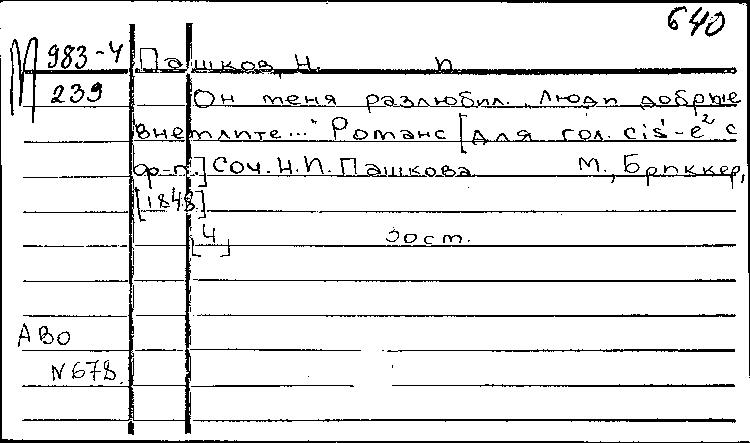 640
М 983-4 Пашков, Н. П
239 Он меня разлюбил. „Люди добрые
внемлите..." Романс [для гол. cis'-e² с
ф-п.] Соч. Н.П. Пашкова М., Бриккер,
[1848]
[4] 30 ст.
АВО
N678.